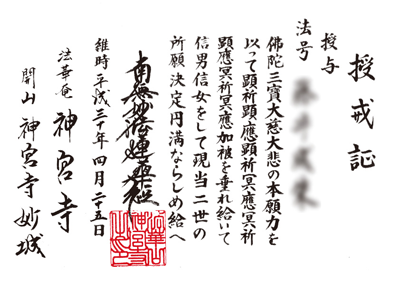 授戒証
授与
法号
佛陀三寳大慈大悲の本願力を
以って顕祈顕應顕祈冥應冥祈
顕應冥祈冥應加被を垂れ給いて
信男信女をして現当二世の
所願決定円満ならしめ給へ
南無妙法蓮華経
維時平成三十年四月二十五日
法華庵 神宮寺
開山 神宮寺妙城